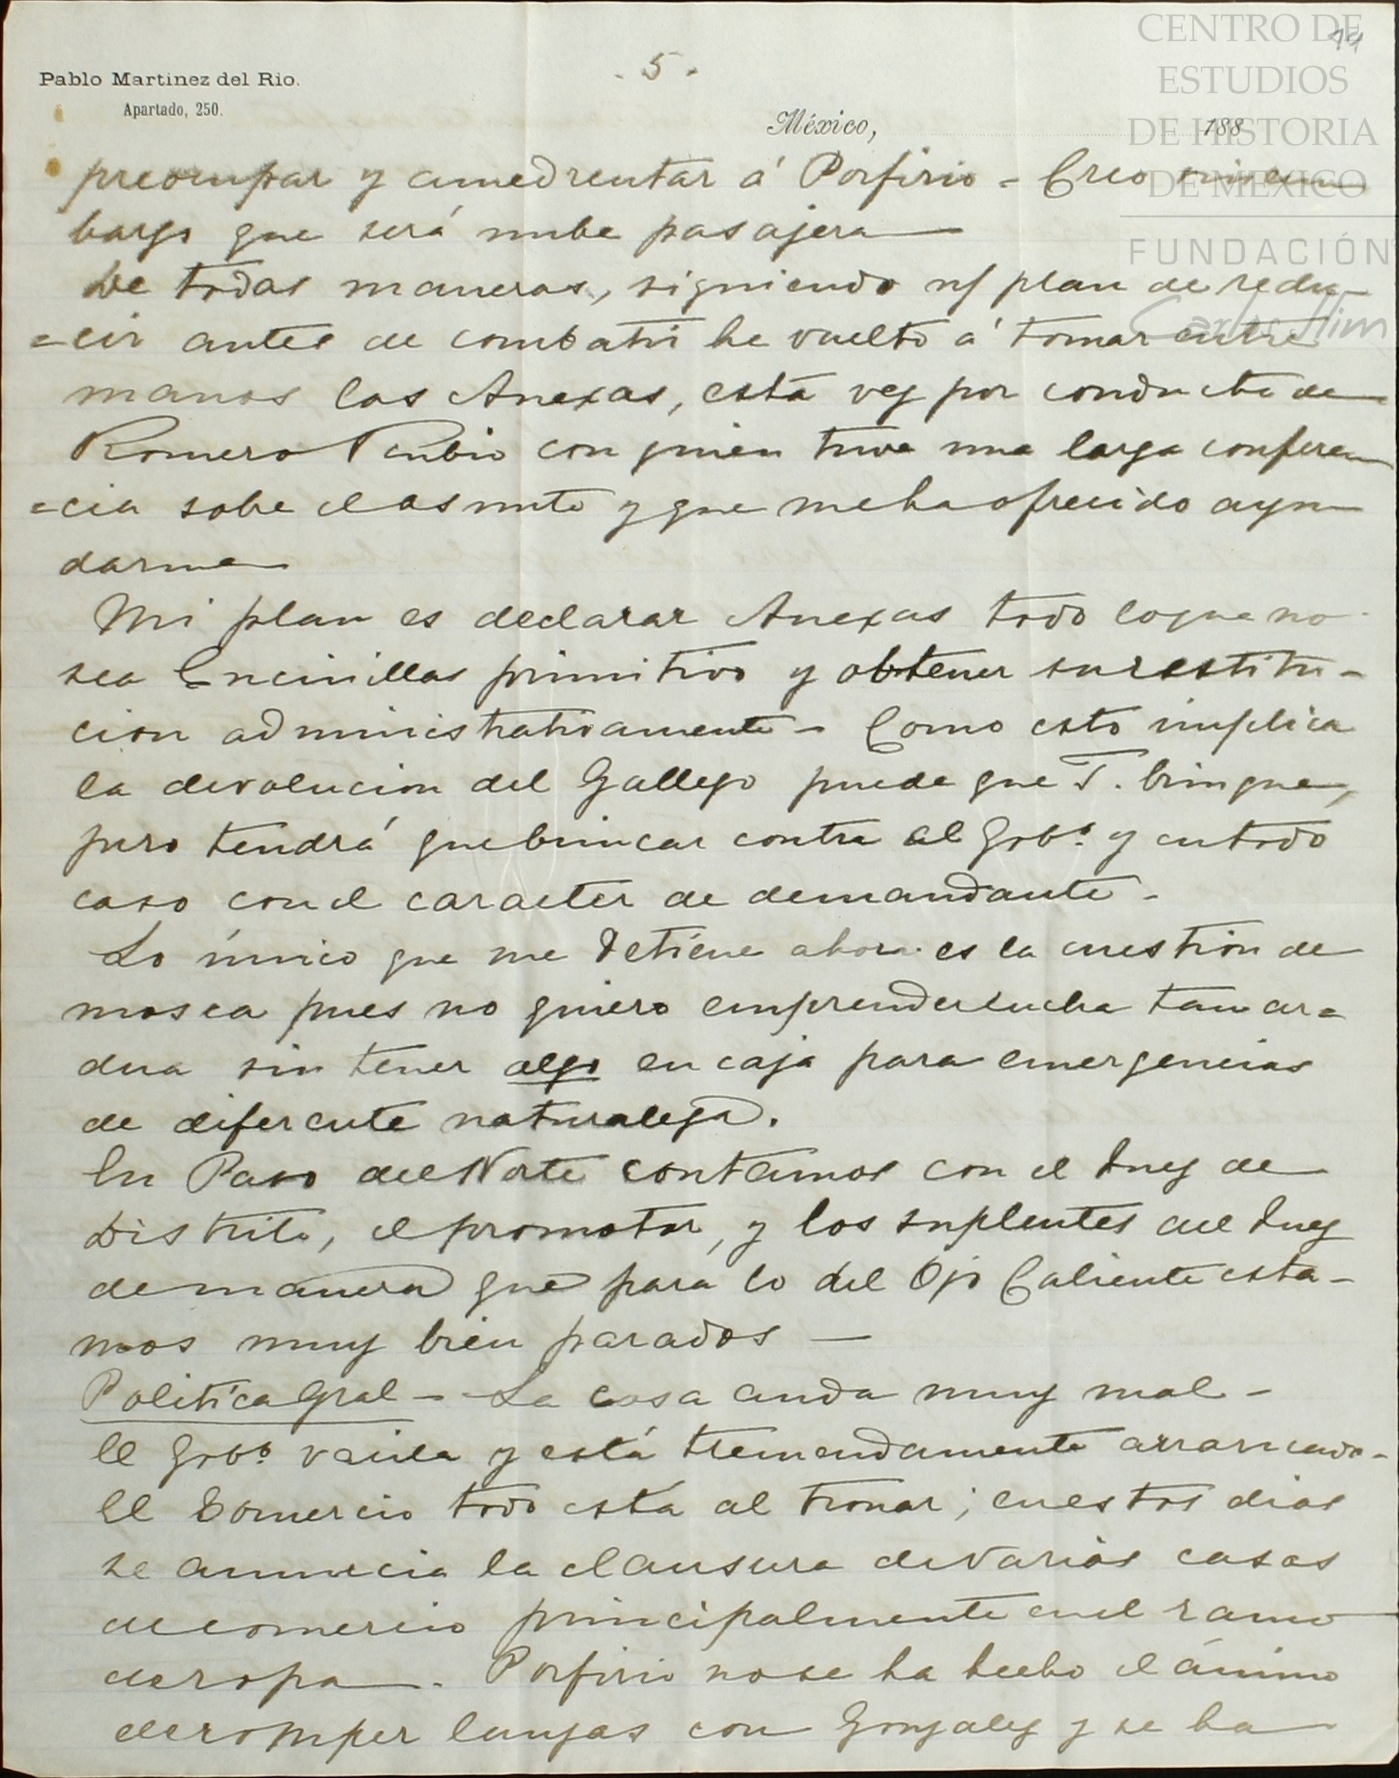 CENTRO DE
ESTUDIOS
DE HISTORIA
DE MÉXICO
FUNDACIÓN
Carlos Slim
Pablo Martinez del Rio.
Apartado, 250.
- 5 -
México, 188
preocupar y amedrentar á Porfirio - Creo sin em
bargo que será nube pasajera
De todas maneras, siguiendo mi plan de redu-
=cir antes de combatir he vuelto á tomar entre
manos las Anexas, esta vez por conducto de
Romero Rubio con quien tuve una larga conferen
=cia sobre el asunto y que me ha ofrecido ayu
darme
Mi plan es declarar Anexas todo lo que no
sea Encinillas primitivo y obtener su restitu-
cion administrativamente - Como esto implica
la devolucion del Gallego puede que T. brinque,
pero tendrá que brincar contra el Gobº. y en todo
caso con el caracter de demandante -
Lo único que me detiene ahora es la cuestion de
mosca pues no quiero emprender lucha tan ar=
dua sin tener algo en caja para emergencias
de diferente naturaleza.
En Paso del Norte contamos con el Juez de
Distrito, el promotor, y los suplentes del Juez
de manera que para lo del Ojo Caliente esta-
mos muy bien parados —
Politica Gral - La cosa anda muy mal -
El Gobº. vacila y está tremendamente arrancado -
El Comercio todo está al tronar; en estos dias
se anuncia la clausura de varias casas
de comercio principalmente en el ramo
de ropa -. Porfirio no se ha hecho el ánimo
de romper lanzas con Gonzalez y se ha